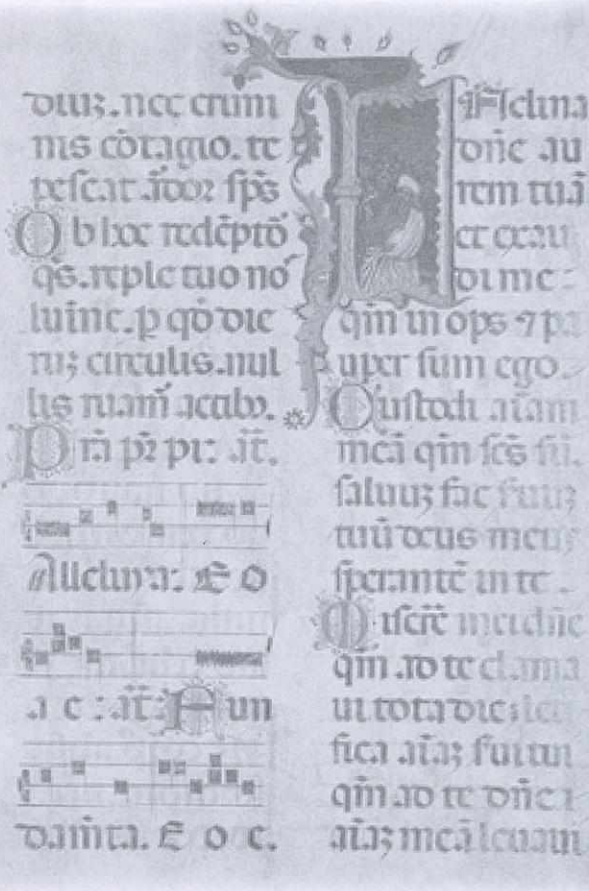 diuz. nec crimi
nis cōtagio. te
pescat ardor sp̄s
Ob hoc redēpto
q̄s. reple tuo no
lumīe. p quō die
ruz circulis. nul
lis ruam̄ actibꝫ.
Prā pr̄ pi: at̄.
Alleluya: E O
a e : at̄: Aun
dam̄ta. E o e.
Inclina
dn̄e au
rem tuā
et exau
di me :
qm̄ inops ⁊ pa
uper sum ego.
Custodi aīam
meā qm̄ scs̄ sū.
saluuz fac suuz
tuū deus meus
sperantē in te.
Miserē mei dn̄e
qm̄ ad te clama
ui tota die: leti
fica aīaz sui tui
qm̄ ad te dn̄e
aīaz meā leuaui